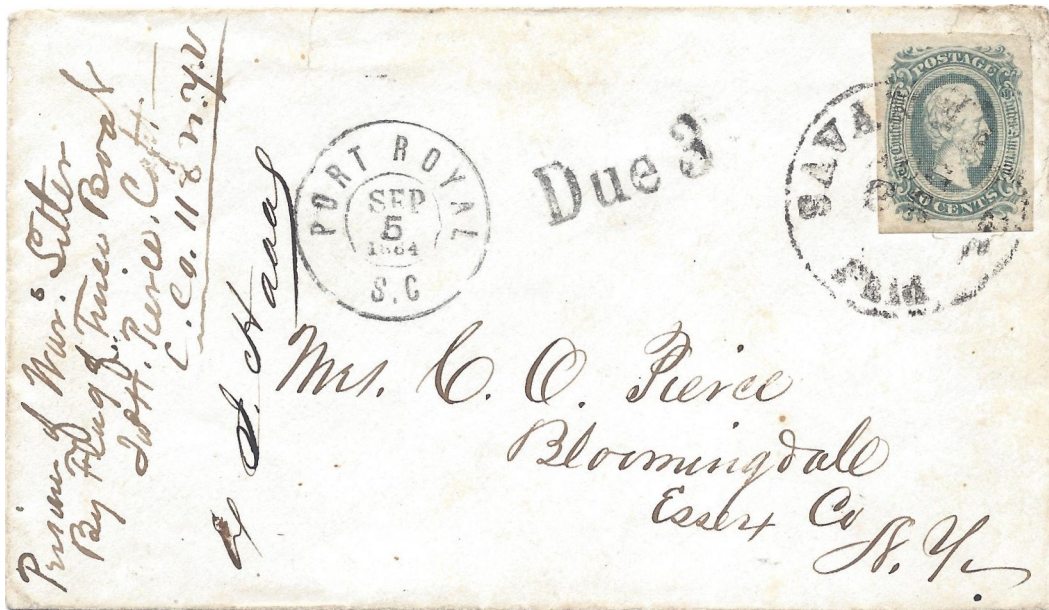 Prisoner of War's Letter
By Flag of Truce
Pierce, Capt.
C. Co. 118 N.Y.V
PORT ROYAL
SEP
5
1864
S.C
Due 3
SAVA
POSTAGE
CENTS
Mrs. C. O. Pierce
Bloomingdale
Essex Co
N. Y.